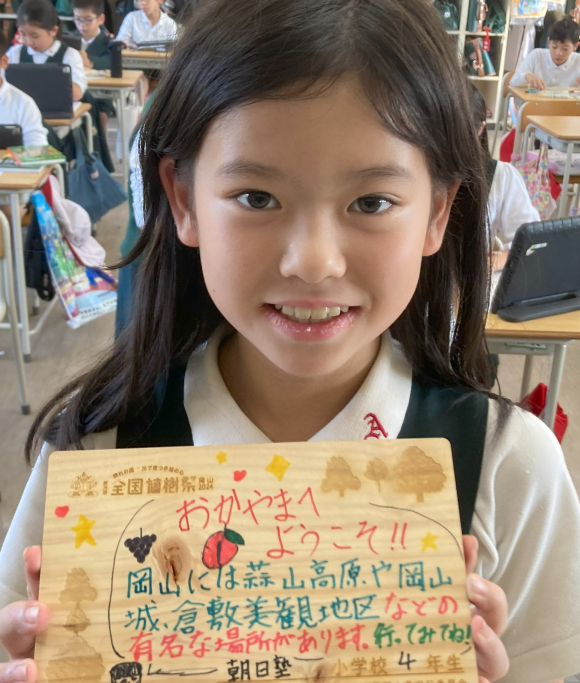 全国植樹祭
岡山
2024
おかやまへ
ようこそ!!
岡山には蒜山高原や岡山
城、倉敷美観地区などの
有名な場所があります。行ってみてね!
朝日塾 小学校 4 年生
A